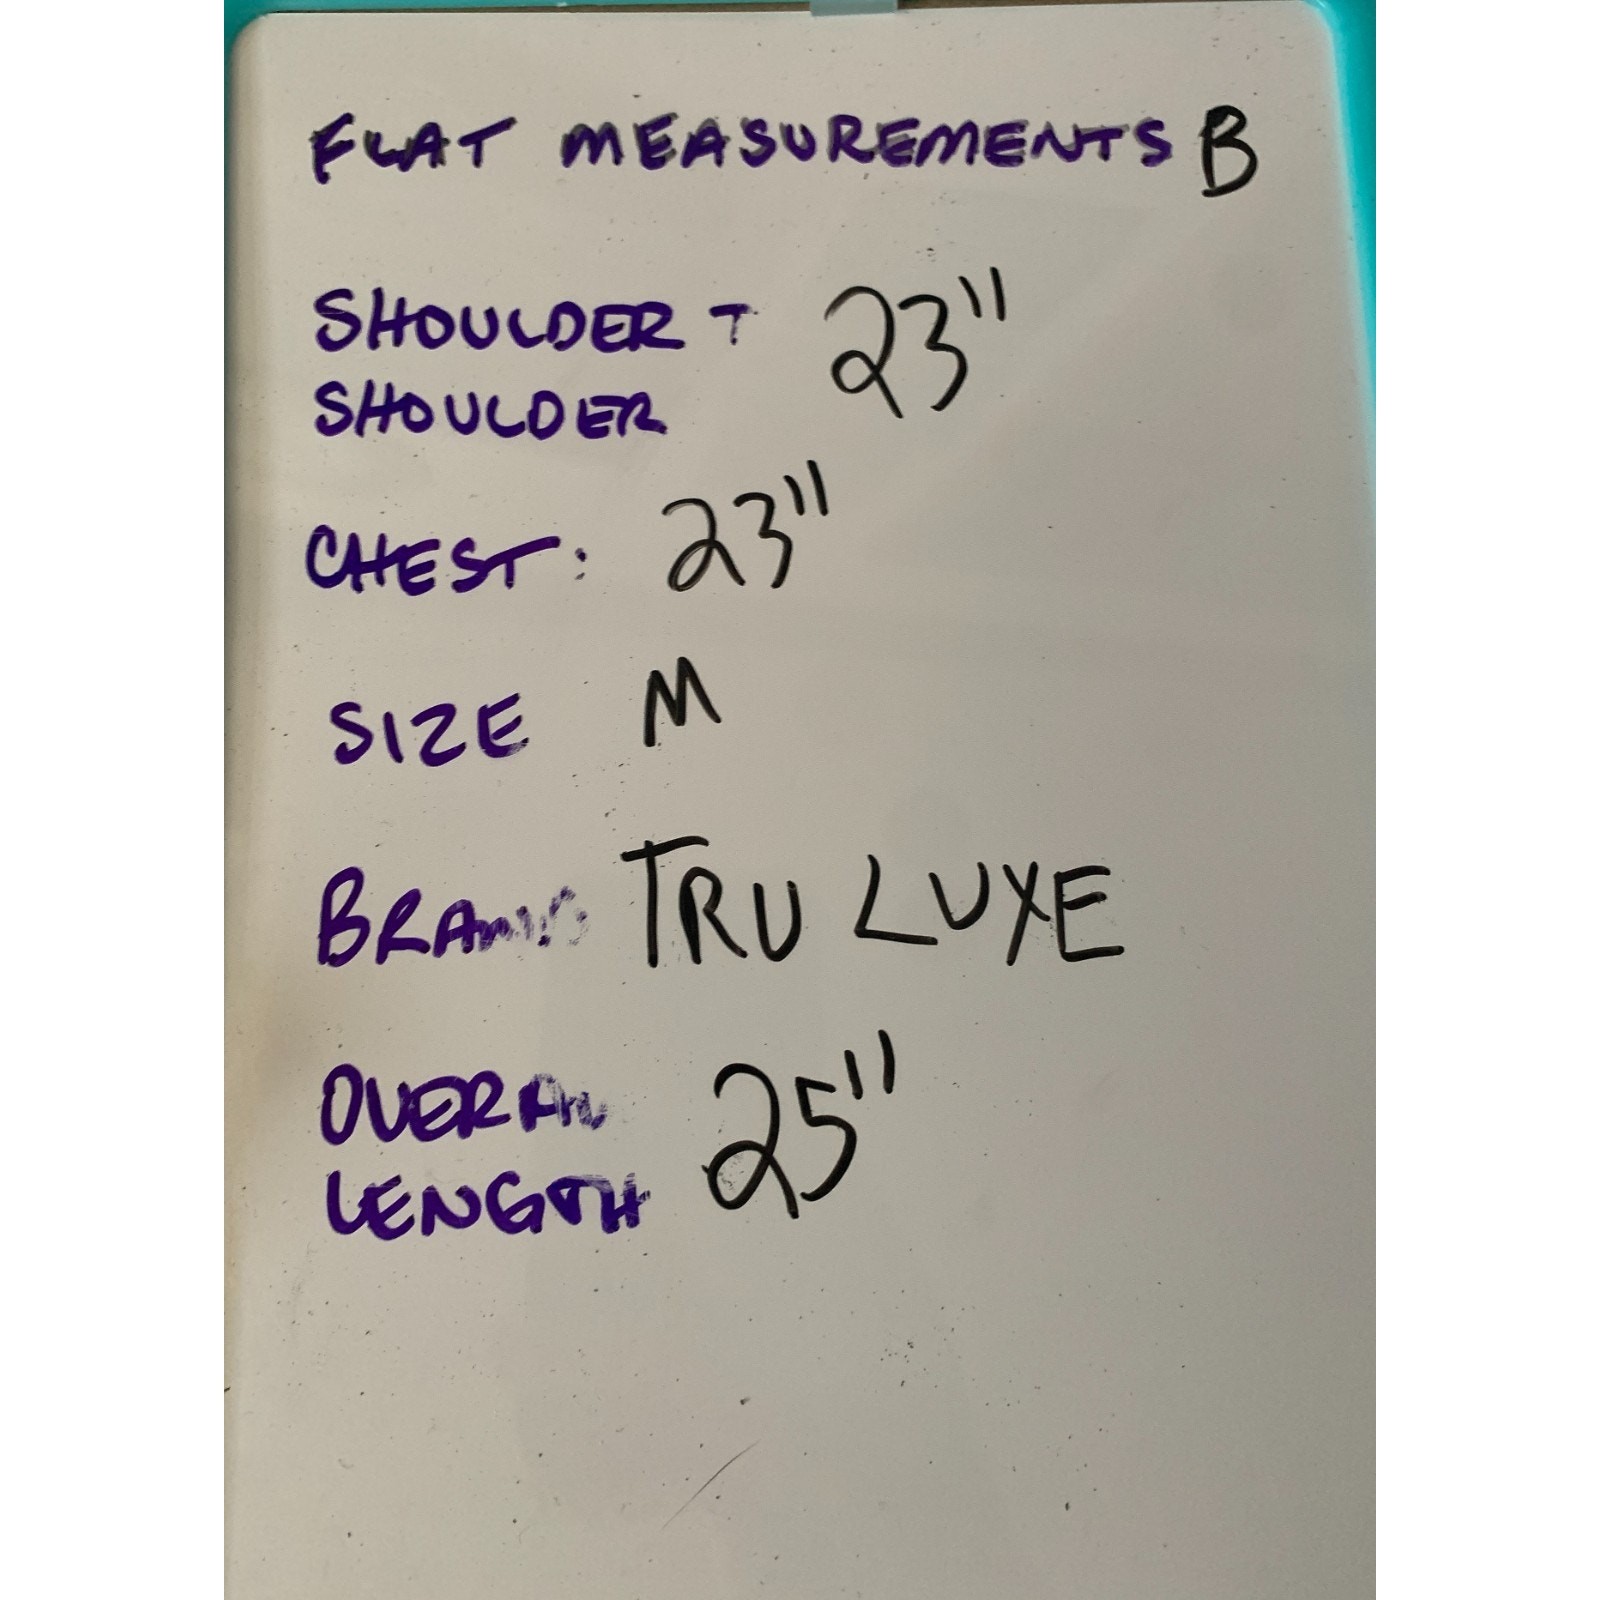 FLAT MEASUREMENTS B
SHOULDER T 23"
SHOULDER
CHEST: 23"
SIZE M
BRAND TRU LUXE
OVERALL 25"
LENGTH